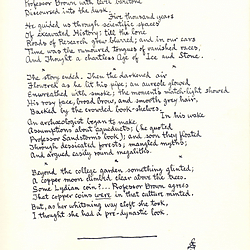 Professor Brown with level baritone
Discoursed into the dusk.
Five thousand years
He guided us through scientific spaces
Of excavated History; till the lone
Roads of Research grew blurred; and in our ears
Time was the rumoured tongues of vanished races,
And Thought a chartless Age of Ice and Stone.
*
The story ended. Then the darkened air
Flowered as he lit his pipe; an aureole glowed
Enwreathed with smoke; the moment's match-light showed
His rosy face, broad brow, and smooth grey hair,
Backed by the crowded book-shelves.
In his wake
An archæologist began to make
Assumptions about aqueducts; (he quoted
Professor Sandstorm's book;) and soon they floated
Through desiccated forests; mangled myths;
And argued easily round megaliths.
*
Beyond the college garden something glinted;
A copper moon climbed clear above the trees.
Some Lydian coin?... Professor Brown agrees
That copper coins were in that culture minted.
But, as her whitening way aloft she took,
I thought she had a pre-dynastic look.